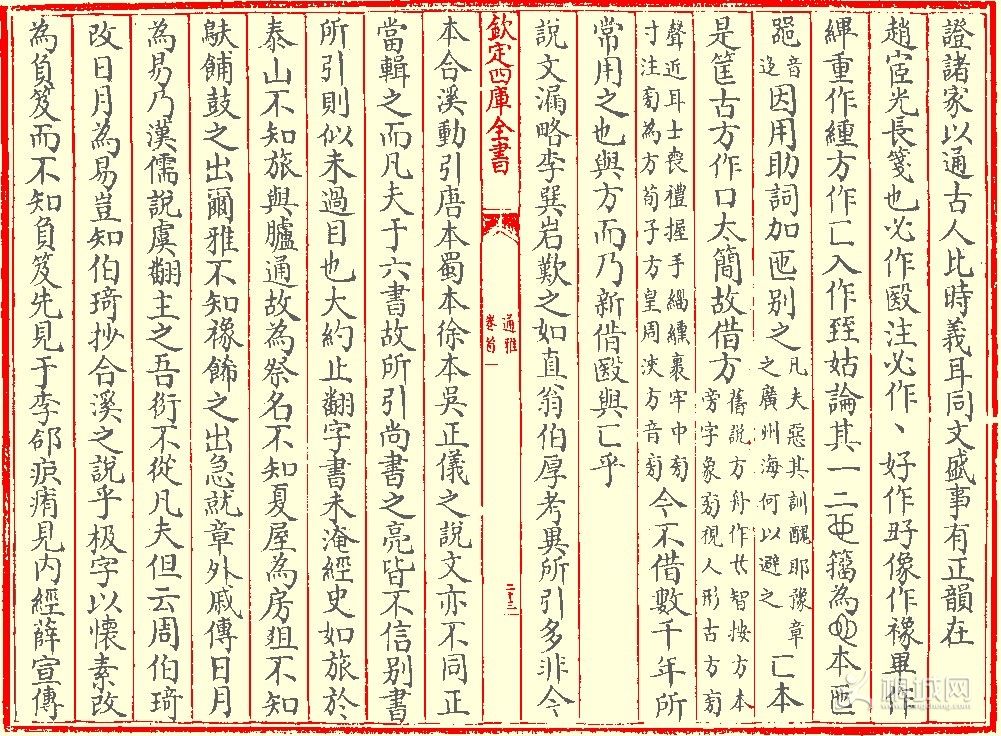 證諸家以通古人比時義耳同文盛事有正韻在
趙宧光長箋也必作殹注必作丶好作𡥃像作襐畢作
縪重作緟方作匚入作臸姑論其一二𠥓籀為本匜
器音迤因用助詞加匜别之凡夫惡其訓醜耶豫章之廣州海何以避之匚本
是筐古方作口太簡故借方舊說方舟作㫄智按方本旁字象㫄視人形古方㫄
聲近耳士喪禮握手緇纁裏牢中㫄寸注㫄為方荀子方皇周浹方音㫄今不借數千年所
常用之也與方而乃新借殹與匚乎
說文漏略李巽岩歎之如直翁伯厚考異所引多非今
欽定四庫全書
通雅
卷首一
二十三
本合溪動引唐本蜀本徐本吳正儀之說文亦不同正
當輯之而凡夫于六書故所引尚書之亮皆不信别書
所引則似未過目也大約止翻字書未淹經史如旅於
泰山不知旅與臚通故為祭名不知夏屋為房俎不知
鼥餔鼓之出爾雅不知襐飾之出急就章外戚傳日月
為易乃漢儒說虞翻主之吾衍不從凡夫但云周伯琦
改日月為易豈知伯琦抄合溪之說乎极字以懷素改
為負笈而不知負笈先見于李郃疻痏見内經薛宣傳